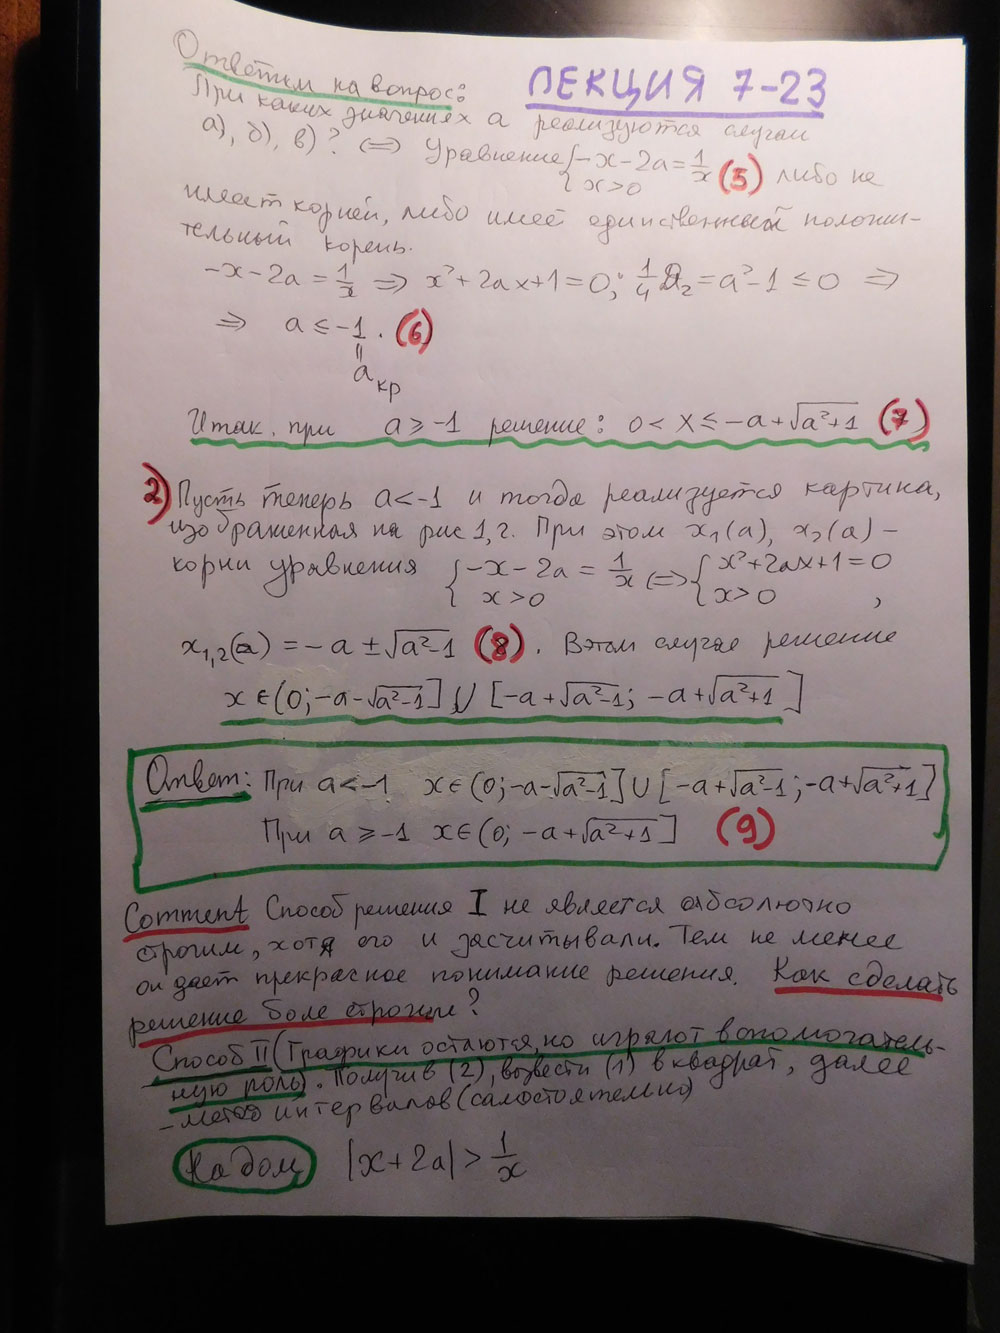 Ответим на вопрос: ЛЕКЦИЯ 7-23
При каких значениях a реализуются случаи
а), б), в)? <=> Уравнение { -x-2a = 1/x (5) либо не
x>0
имеет корней, либо имеет единственный положи-
тельный корень.
-x-2a = 1/x => x²+2ax+1=0; 1/4 D₂ = a²-1 ≤ 0 =>
=> a ≤ -1. (6)
||
a кр
Итак, при a ≥ -1 решение: 0 < x ≤ -a+√(a²+1) (7)
2) Пусть теперь a<-1 и тогда реализуется картина,
изображенная на рис 1,г. При этом x₁(a), x₂(a) -
корни уравнения { -x-2a = 1/x <=> { x²+2ax+1=0
x>0 x>0 ,
x₁,₂(a) = -a ± √(a²-1) (8). В этом случае решение
x ∈ (0; -a-√(a²-1)] ∪ [-a+√(a²-1); -a+√(a²+1)]
Ответ: При a<-1 x ∈ (0; -a-√(a²-1)] ∪ [-a+√(a²-1); -a+√(a²+1)]
При a ≥ -1 x ∈ (0; -a+√(a²+1)] (9)
Comment Способ решения I не является абсолютно
строгим, хотя его и засчитывали. Тем не менее
он дает прекрасное понимание решения. Как сделать
решение боле строгим?
Способ II (Графики остаются, но играют вспомогатель-
ную роль). Получив (2), возвести (1) в квадрат, далее
- метод интервалов (самостоятельно)
На дом |x+2a| > 1/x